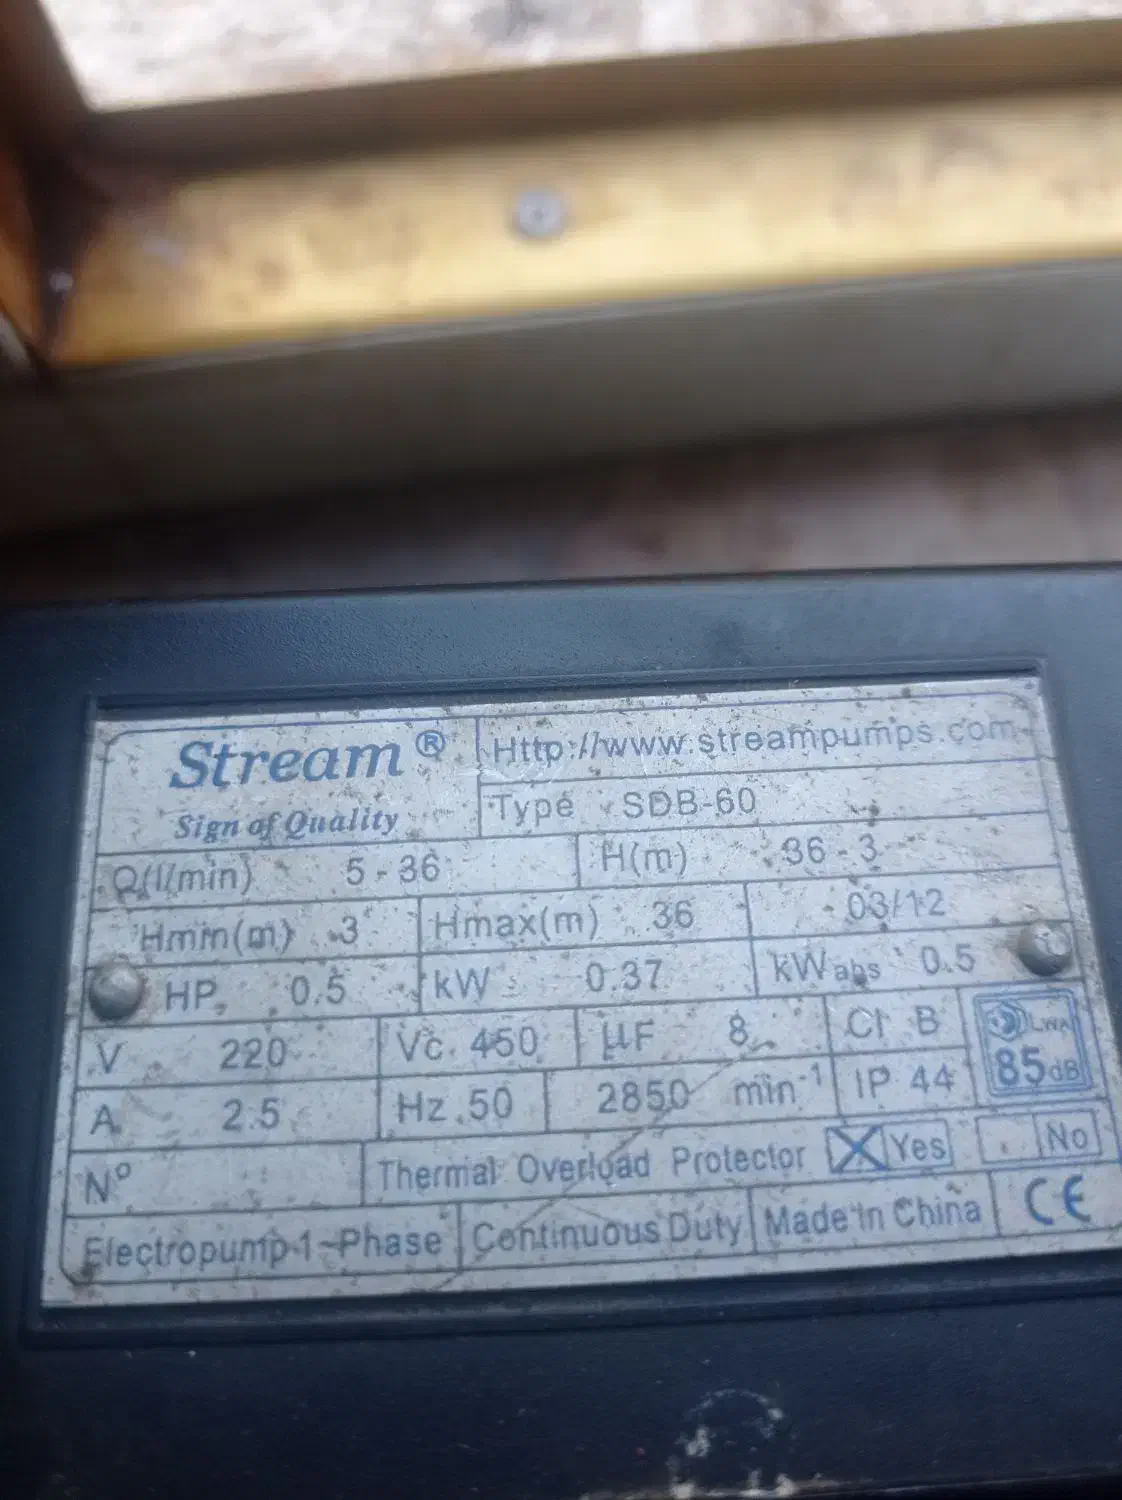 Stream ®
Sign of Quality
Http://www.streampumps.com
Type SDB-60
Q(l/min) 5-36 H(m) 36-3
Hmin(m) 3 Hmax(m) 36 03/12
HP 0.5 kW 0.37 kWabs 0.5
V 220 Vc 450 µF 8 Cl B
A 2.5 Hz 50 2850 min-1 IP 44
LWA
85dB
Nº Thermal Overload Protector X Yes No
Electropump 1~Phase Continuous Duty Made In China CE